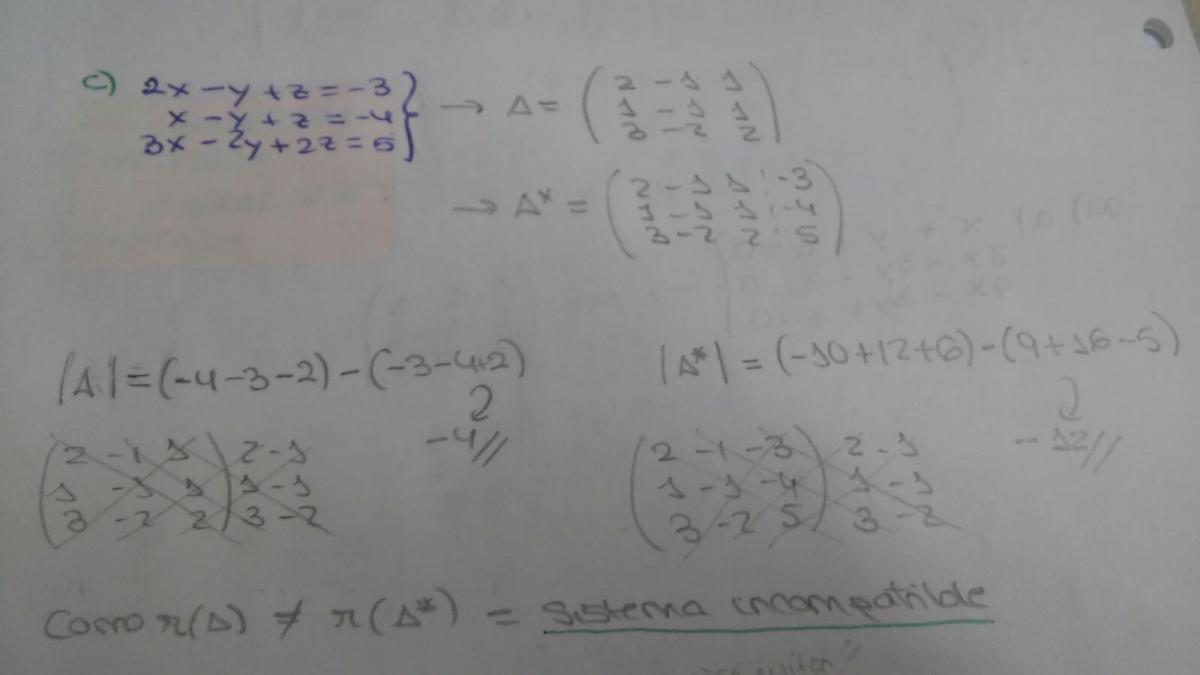 c) 2x - y + z = -3
x - y + z = -4
3x - 2y + 2z = 5
→ A = ( 2 -1 1
1 -1 1
3 -2 2 )
→ A* = ( 2 -1 1 : -3
1 -1 1 : -4
3 -2 2 : 5 )
|A| = (-4-3-2) - (-3-4+2)
-4//
( 2 -1 1 ) 2 -1
1 -1 1 1 -1
3 -2 2 3 -2
|A*| = (-10+12+6) - (9+16-5)
-12//
( 2 -1 -3 ) 2 -1
1 -1 -4 1 -1
3 -2 5 3 -2
Como r(A) ≠ r(A*) = Sistema incompatible